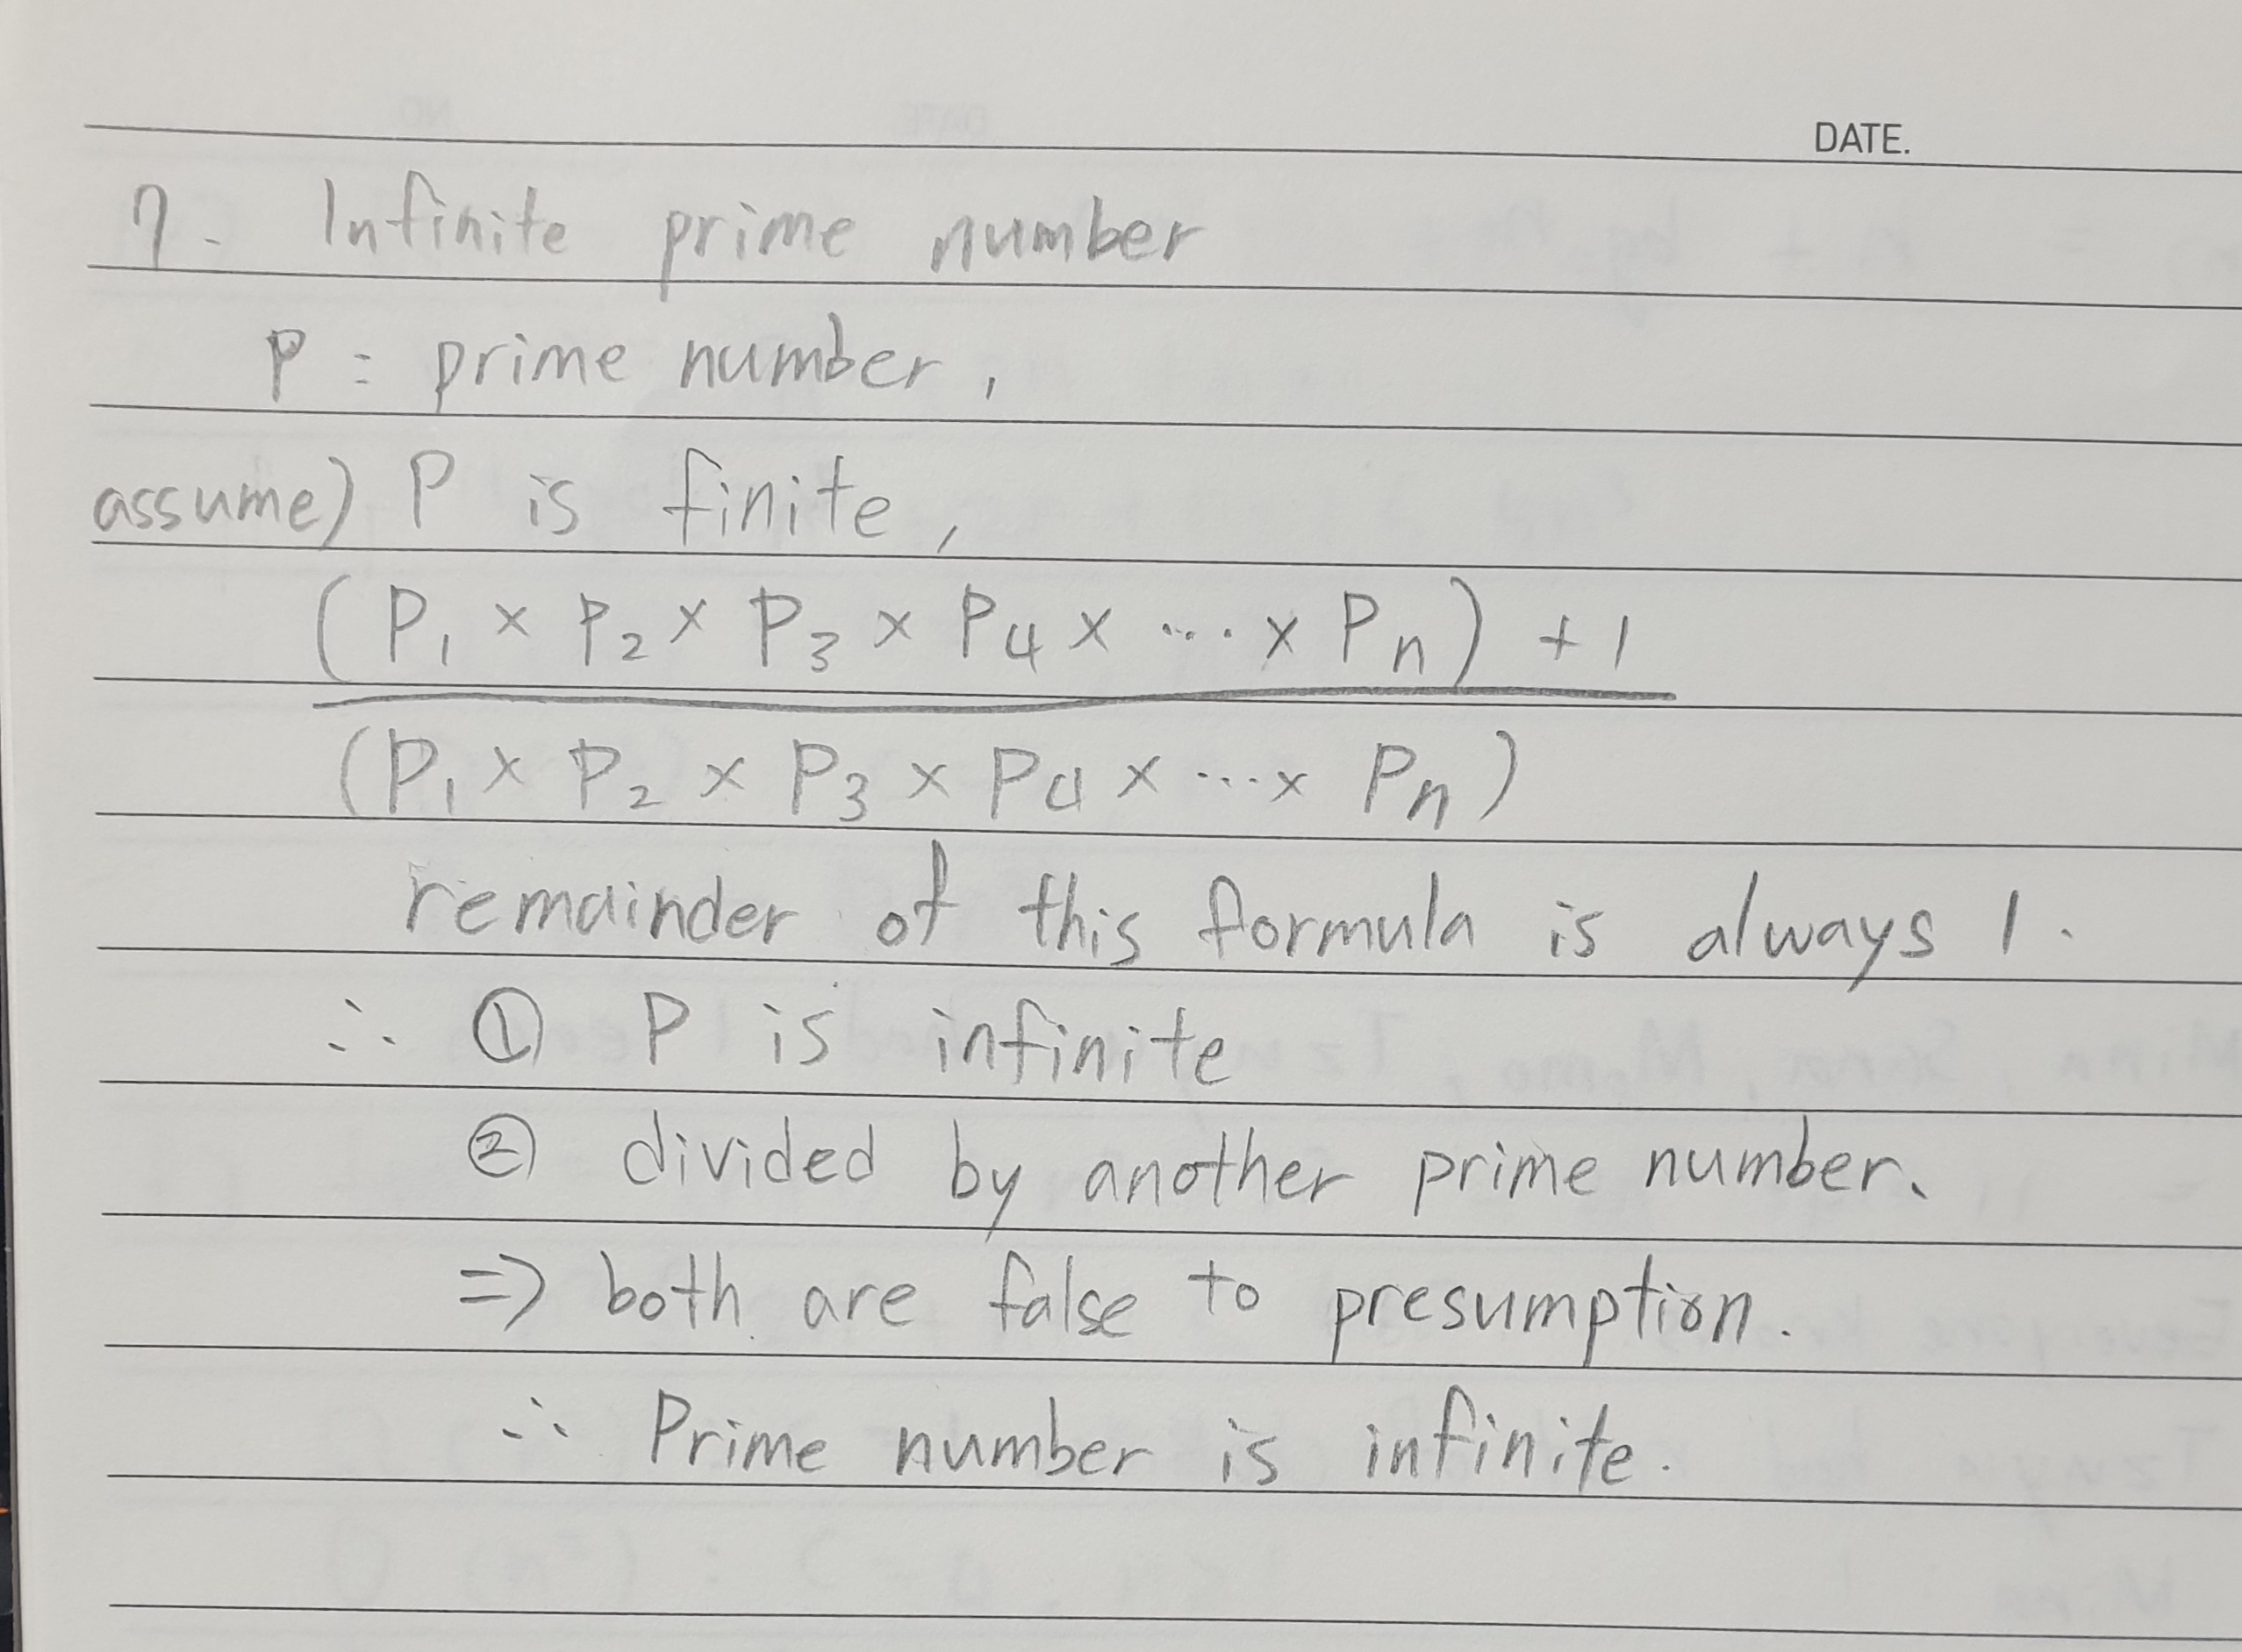 DATE.
7. Infinite prime number
P : prime number,
assume) P is finite,
(P₁ × P₂ × P₃ × P₄ × ... × Pₙ) + 1
(P₁ × P₂ × P₃ × P₄ × ... × Pₙ)
remainder of this formula is always 1.
∴ ① P is infinite
② divided by another prime number.
=> both are false to presumption.
∴ Prime number is infinite.